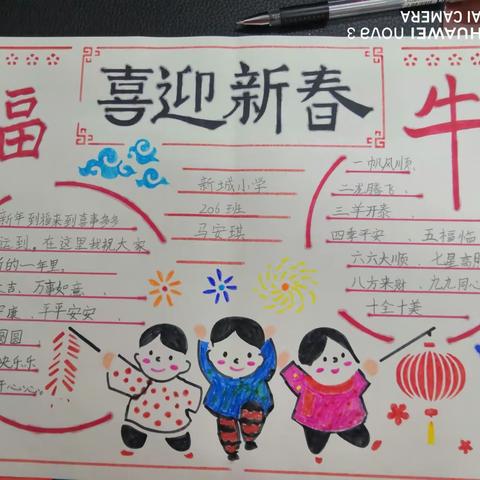 HUAWEI nova 3
AI CAMERA
喜迎新春
福
牛
新城小学
206班
马安琪
新年到福来到喜事多多
运到,在这里我祝大家
的一年里,
大吉、万事如意、
安康、平平安安、
圆圆
快乐乐
开心心。
一帆风顺、
二龙腾飞、
三羊开泰、
四季平安、五福临
六六大顺、七星高照
八方来财、九九同心
十全十美